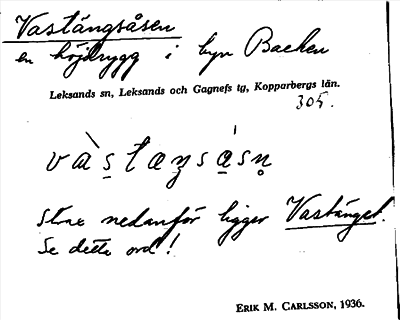 Vastängsåsen
en höjdrygg i byn Backen
Leksands sn, Leksands och Gagnefs tg, Kopparbergs län.
305.
strax nedanför ligger Vastänget.
Se detta ord!
ERIK M. CARLSSON, 1936.